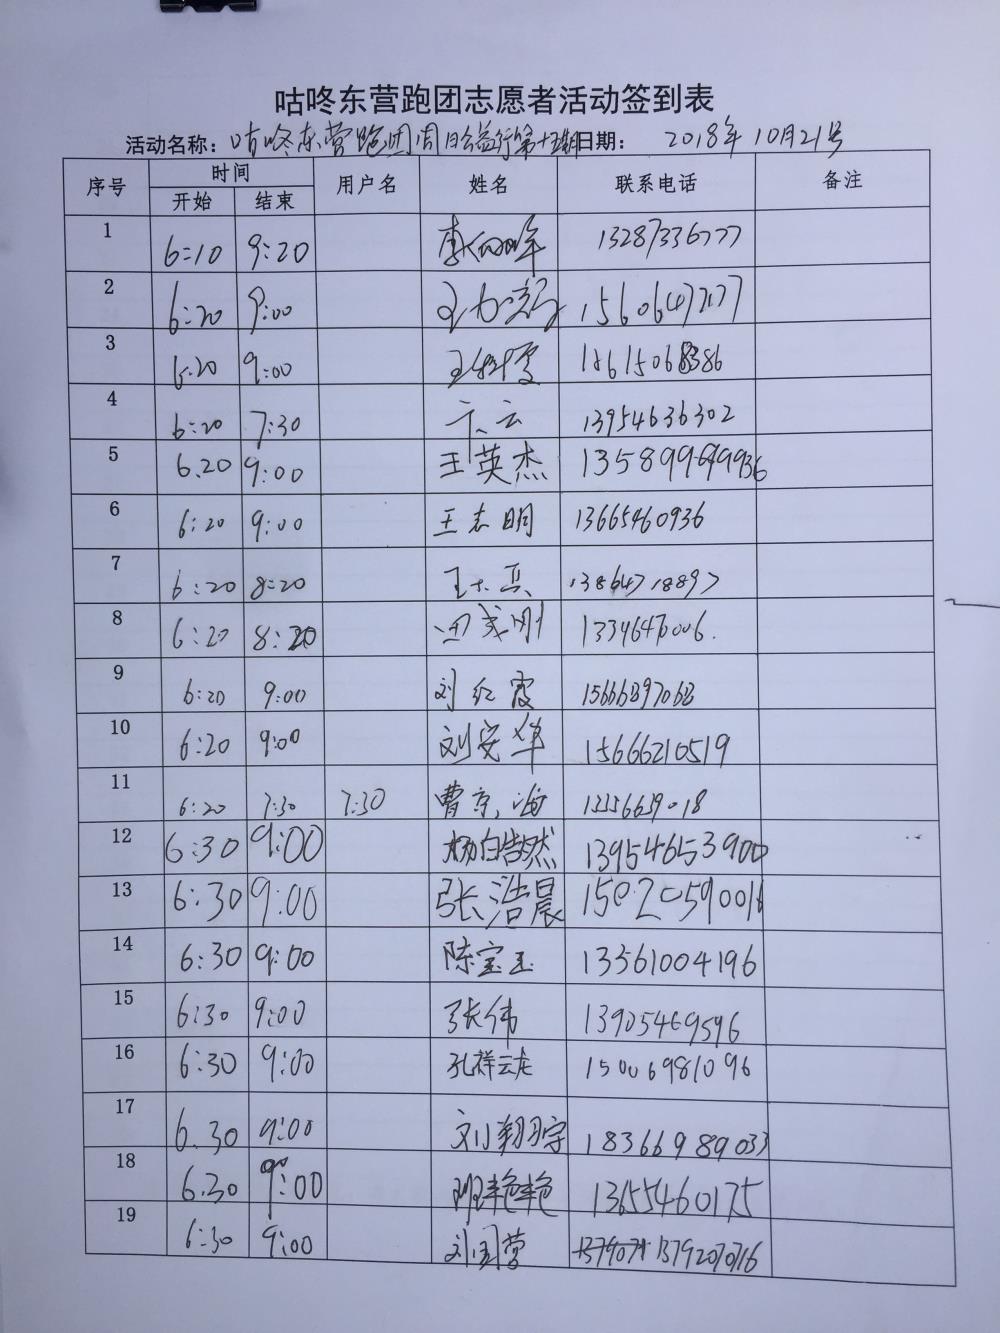 咕咚东营跑团志愿者活动签到表
活动名称：咕咚东营跑团周日公益行第十五期 日期： 2018年10月21号
序号 时间 用户名 姓名 联系电话 备注
开始 结束
1 6:10 9:20 13287336777
2 6:20 9:00 15606472177
3 6.20 9:00 王 15615068386
4 6:20 7:30 13954636302
5 6.20 9:00 王英杰
6 6:20 9:00 王志明 13665460936
7 6:20 8:20 王 13864718897
8 6:20 8:20 刚
9 6:20 9:00 刘红霞
10 6:20 9:00 刘安华 15666210519
11 6:20 7:30 7:30 曹京海
12 6:30 9:00 杨白浩然 13954653900
13 6:30 9:00 张浩晨 15020590016
14 6:30 9:00 陈宝玉 13561004196
15 6:30 9:00 张伟 13905469596
16 6:30 9:00 孔祥云龙 15006981096
17 6.30 9:00 刘翱宇 18366989033
18 6.30 9:00 班艳艳 13655460175
19 6:30 9:00 刘国营 13792070716